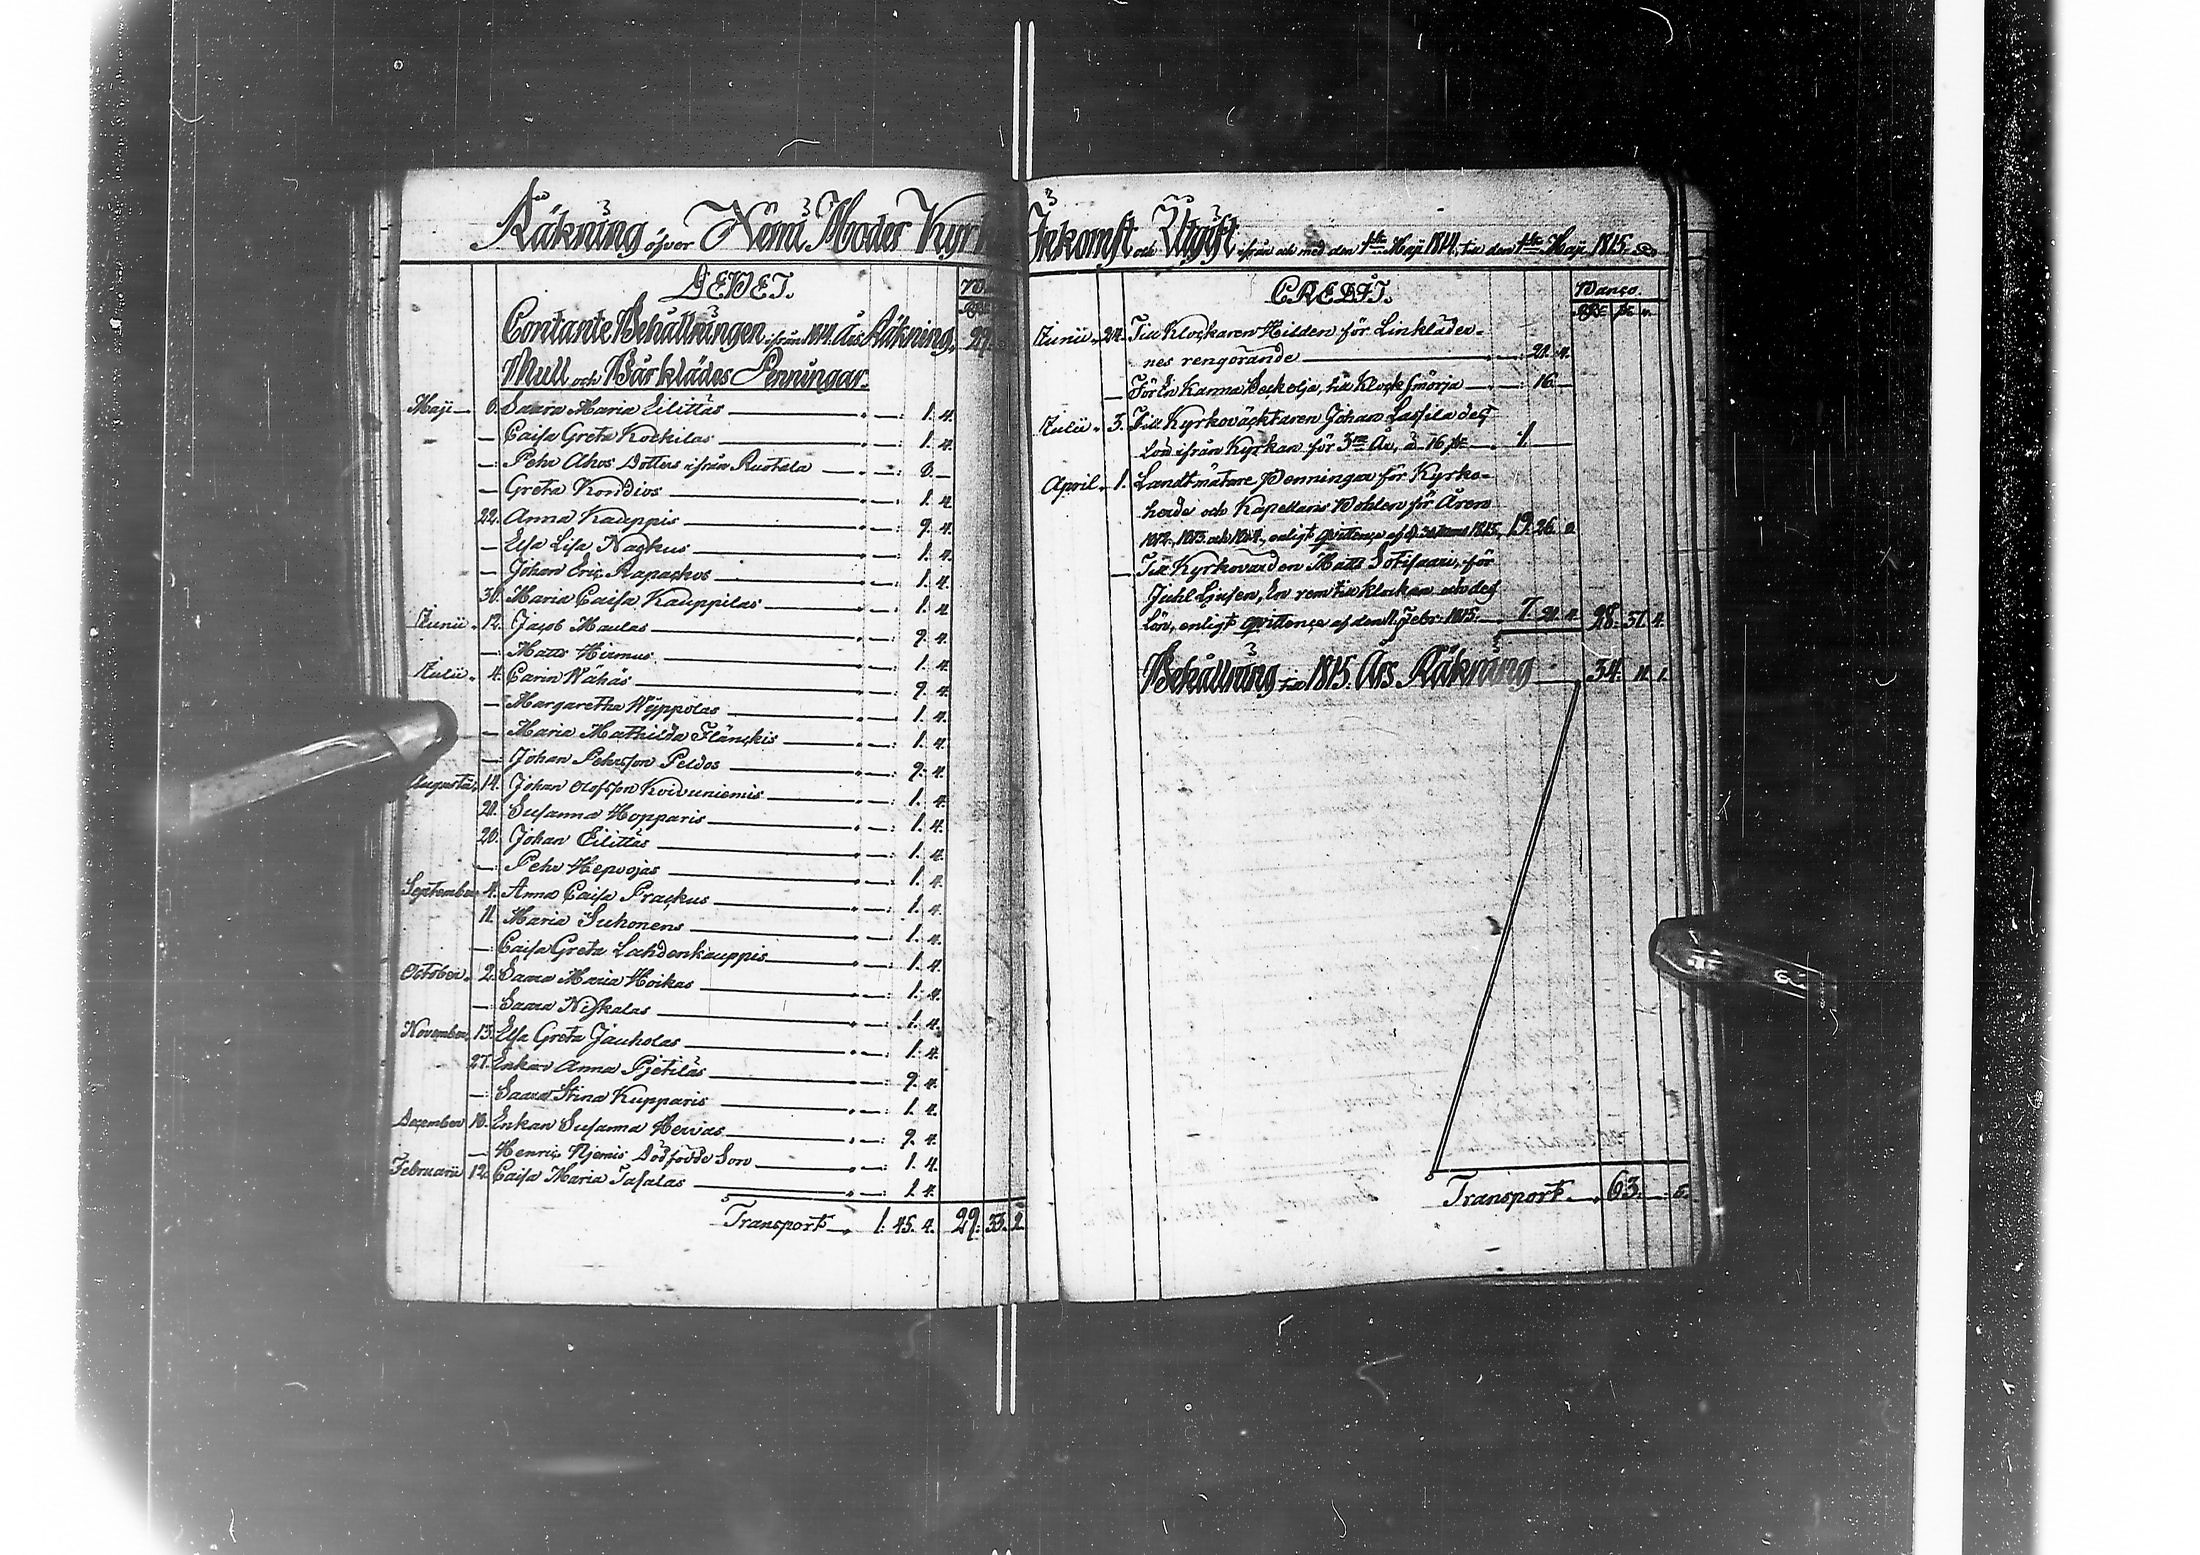 Räkning öfver Nemi Moder Kyrk
DEBET.
Contante Behållningen ifrån 1814. Års Räkning. 29.
Mull och Bårklädes Penningar.
Maji 6. Saara Maria Eilittäs 1. 4.
Caisa Greta Kockilas 1. 4.
Pehr Ahos Dotters ifrån Ruotala
Greta Kondios 1. 4.
22. Anna Kauppis 2. 4.
Elsa Lisa Nackus 1. 4.
Johan Eric Rapackos 1. 4.
30. Maria Caisa Kauppilas 1. 4.
Junii 12. Jacob Maulas 2. 4.
Matts Hirmus 1. 4.
Julii 4. Carin Wähäs 2. 4.
Margaretha Wyppolas 1. 4.
Maria Mathilda Flänckis 1. 4.
Johan Pehrsson Peldos 2. 4.
Augusti 14. Johan Olofsson Koivuniemis 1. 4.
21. Susanna Hopparis 1. 4.
Johan Eilittäs 1. 4.
Pehr Hepoojas 1. 4.
September 4. Anna Caisa Prackus 1. 4.
11. Maria Suhonens 1. 4.
Caisa Greta Lahdenkauppis 1. 4.
October 2. Saara Maria Hoikas 1. 4.
Saara Niskalas 1. 4.
November 13. Elsa Greta Jauholas 1. 4.
27. Enkan Anna Pjetiläs 2. 4.
Saara Stina Kupparis 1. 4.
December Enkan Susanna Hervas 2. 4.
Henric Njemis Dödfödde Son 1. 4.
Februarii 12. Caisa Maria Tasalas 1. 4.
Transport 1. 45. 4. 29. 33. 2.
Inkomst och Utgift ifrån och med den 1sta Maji 1814, till den 1sta Maji 1815.
CREDIT.
Banco.
Junii 24. Till Klockaren Hilden för Linkläder-
nes rengörande 21. 4.
För En Kanna Beckolja, till Klock smörja 16.
Julii 3. Till Kyrkoväcktaren Johan Lassila dess
Lön ifrån Kyrkan för 3ne År, à 16 1
April 1. Landtmätare Penningar för Kyrko-
herde och Kapellans Bohlen för Åren
1812, 1813 och 1814, enligt qvittence af d. 1815, 19. 26.
Till Kyrkovärden Matts Sotisaari, för
Juhl Ljusen, En rem till klockan och dess
Lön, enligt qvittence af den Febr: 1815. 7. 28. 37. 4.
Behållning till 1815. Års Räkning 34. 11. 1.
Transport 63. 5.